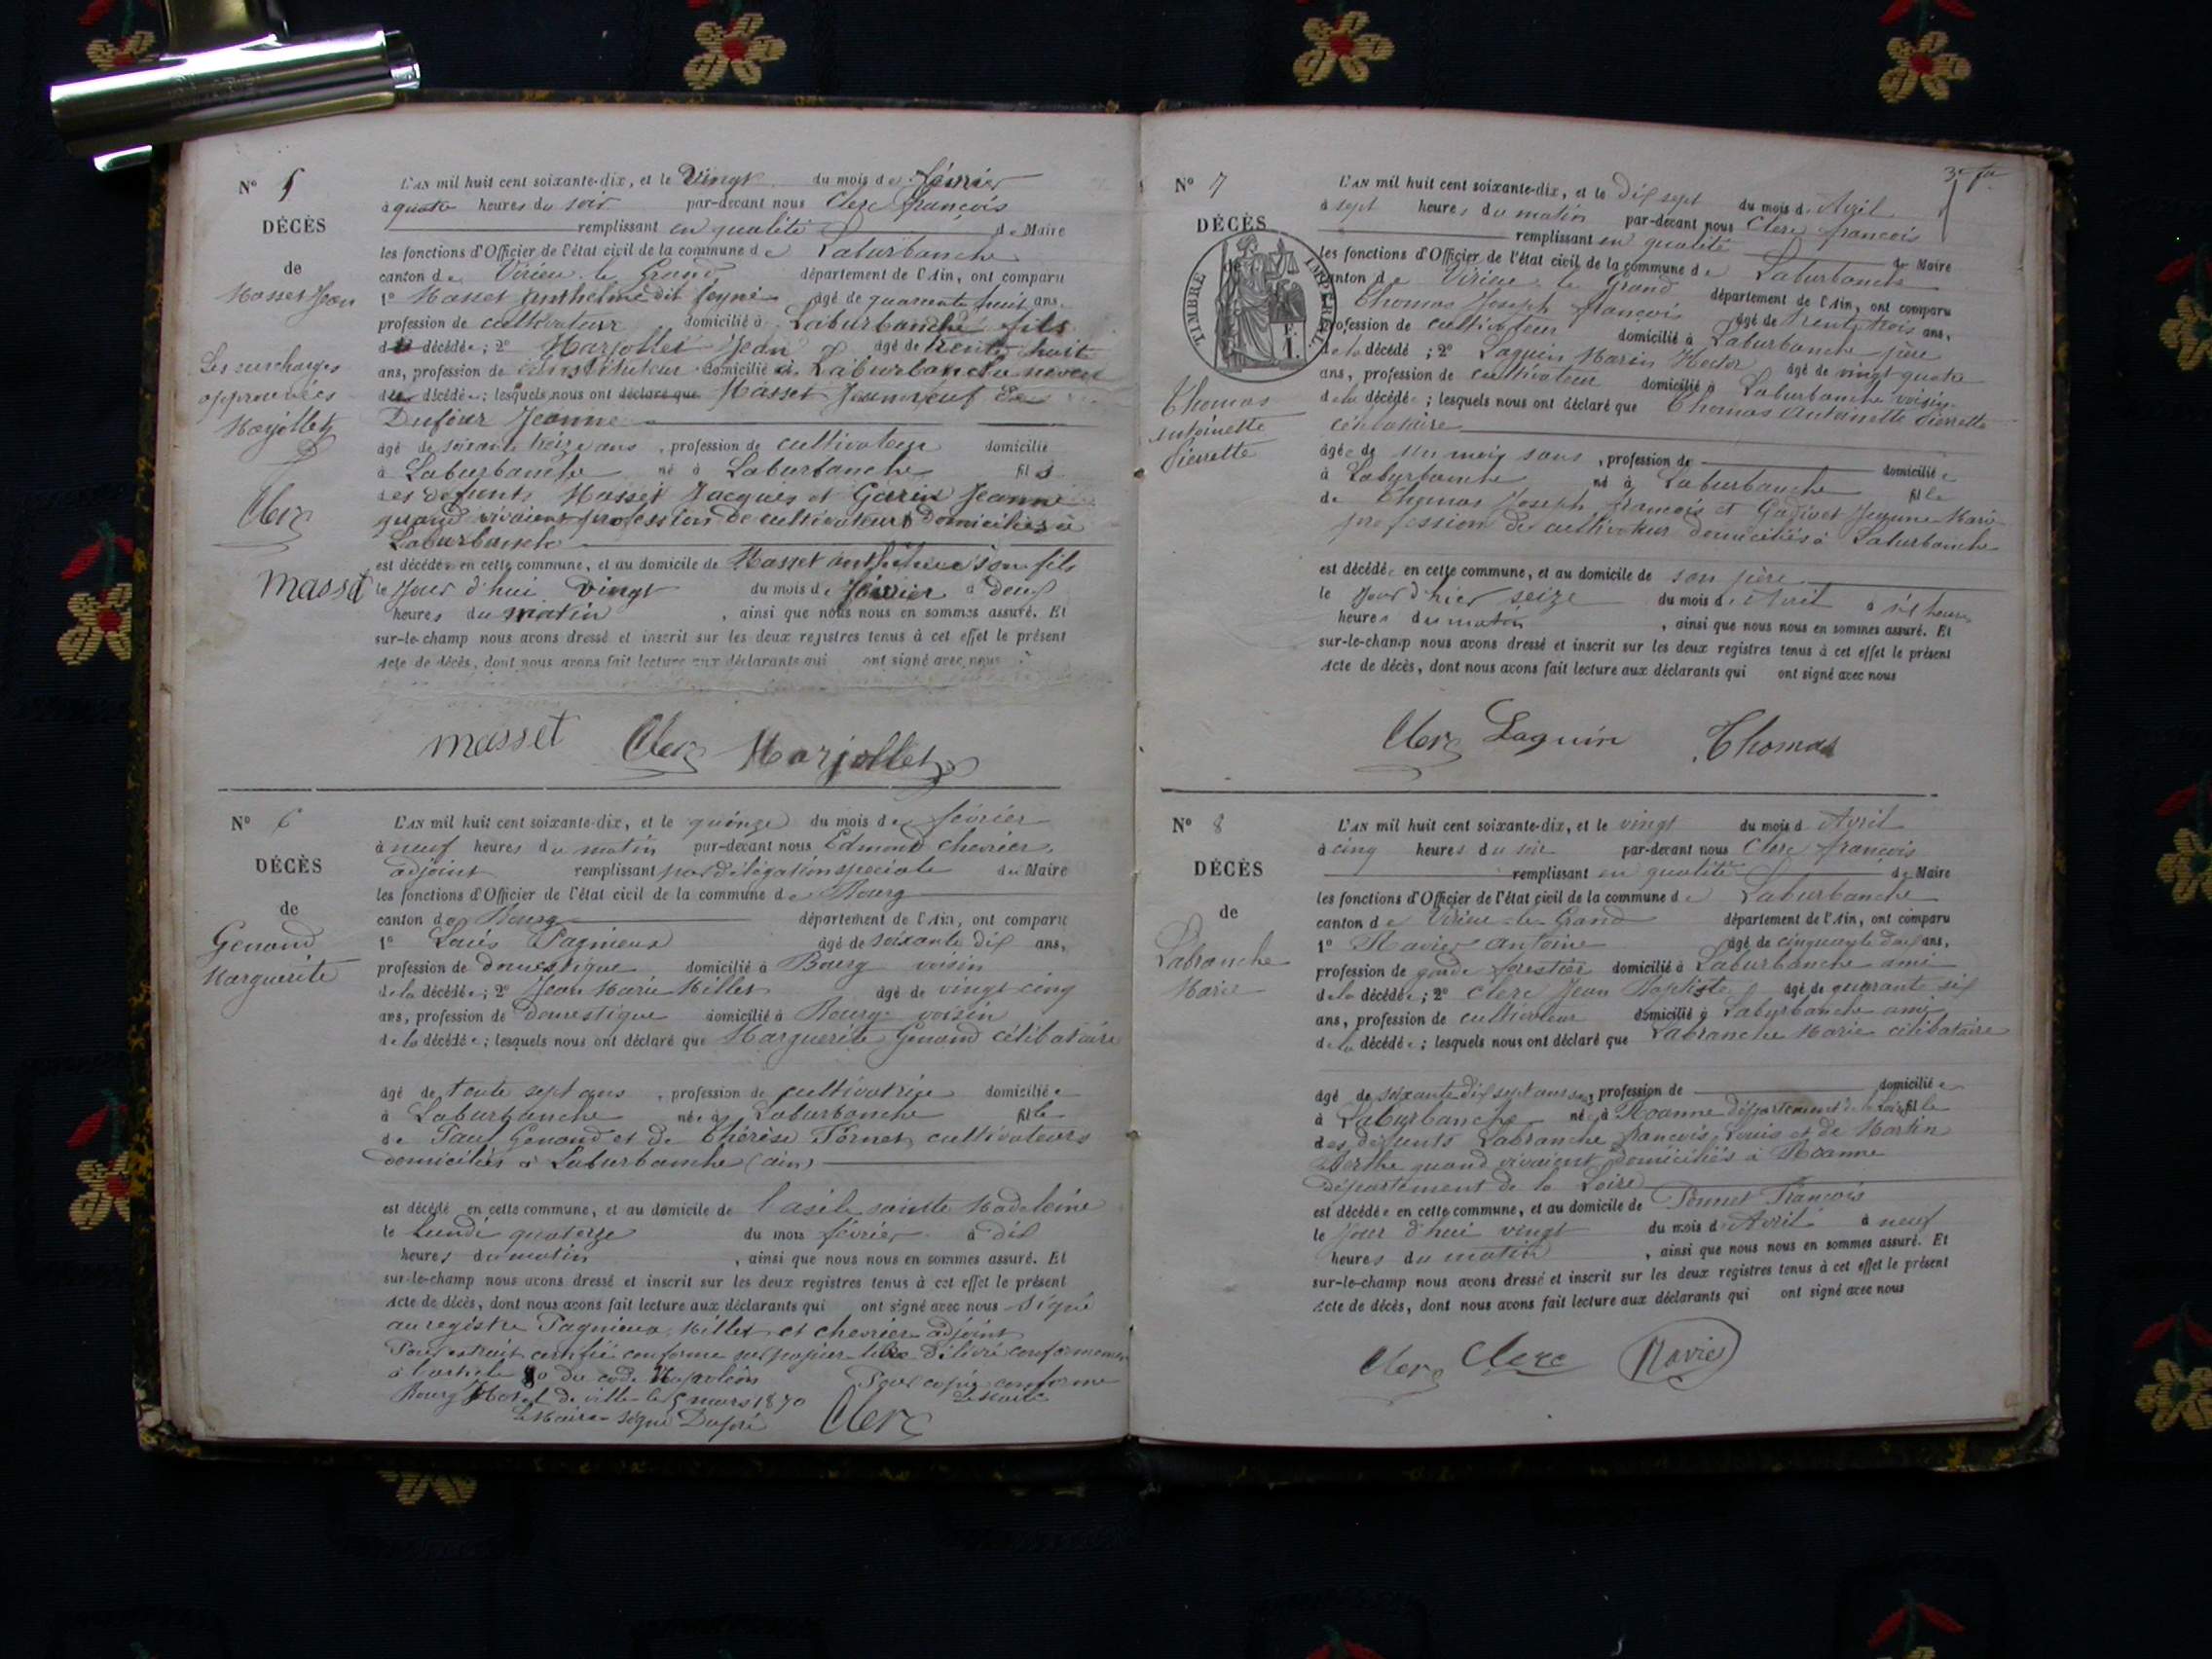 N° 5
DÉCÈS
de
Masset Jean
Les surcharges
approuvées
Marjollet
Clerc
masset
L'AN mil huit cent soixante-dix, et le Vingt du mois de février
à quatre heures du soir par-devant nous Clerc françois
remplissant en qualité de Maire
les fonctions d'Officier de l'état civil de la commune de Laburbanche
canton de Virieu-le-Grand département de l'Ain, ont comparu
1° Masset anthelme dit âgé de quarante huit ans,
profession de cultivateur domicilié à Laburbanche fils
du décédé; 2° Marjollet Jean âgé de trente huit
ans, profession de instituteur domicilié à Laburbanche neveu
du décédé; lesquels nous ont déclaré que Masset Jean veuf de
Dufour Jeanne
âgé de soixante treize ans, profession de cultivateur domicilié
à Laburbanche né à Laburbanche fils
des défunts Masset Jacques et Garin Jeanne
quand vivaient profession de cultivateurs domiciliés à
Laburbanche
est décédé en cette commune, et au domicile de Masset anthelme son fils
le jour d'hui vingt du mois de février à deux
heures du matin, ainsi que nous nous en sommes assuré. Et
sur-le-champ nous avons dressé et inscrit sur les deux registres tenus à cet effet le présent
Acte de décès, dont nous avons fait lecture aux déclarants qui ont signé avec nous
masset Clerc Marjollet
N° 6
DÉCÈS
de
Genoud
Marguerite
L'AN mil huit cent soixante-dix, et le quinze du mois de février
à neuf heures du matin par-devant nous Edmond Chevrier,
adjoint remplissant par délégation speciale du Maire
les fonctions d'Officier de l'état civil de la commune de Bourg
canton de Bourg département de l'Ain, ont comparu
1° Louis Pagnieux âgé de soixante dix ans,
profession de domestique domicilié à Bourg voisin
de la décédée; 2° Jean Marie Millet âgé de vingt cinq
ans, profession de domestique domicilié à Bourg voisin
de la décédée; lesquels nous ont déclaré que Marguerite Genoud célibataire
âgé de trente sept ans, profession de cultivatrice domiciliée
à Laburbanche née à Laburbanche fille
de Paul Genoud et de Thérèse cultivateurs
domiciliés à Laburbanche (ain)
est décédé en cette commune, et au domicile de l'asile sainte Madeleine
le Lundi quatorze du mois février à dix
heures du matin, ainsi que nous nous en sommes assuré. Et
sur-le-champ nous avons dressé et inscrit sur les deux registres tenus à cet effet le présent
Acte de décès, dont nous avons fait lecture aux déclarants qui ont signé avec nous Signé
au registre Pagnieux, Millet et chevrier adjoint
Pour extrait certifié conforme sur papier libre délivré conformement
à l'article 80 du code Napoléon Pour copie conforme
Bourg Hotel de ville le 5 mars 1870 Le Maire
Le Maire signé Dupré Clerc
3e
N° 7
DÉCÈS
de
TIMBRE IMPÉRIAL
Thomas
Antoinette
Pierrette
L'AN mil huit cent soixante-dix, et le dix sept du mois d'Avril
à sept heures du matin par-devant nous Clerc françois
remplissant en qualité de Maire
les fonctions d'Officier de l'état civil de la commune de Laburbanche
canton de Virieu-le-Grand département de l'Ain, ont comparu
Thomas Joseph françois âgé de trente trois ans,
profession de cultivateur domicilié à Laburbanche père
de la décédé; 2° Laguin Marin Hector âgé de vingt quatre
ans, profession de cultivateur domicilié à Laburbanche voisin
de la décédée; lesquels nous ont déclaré que Thomas Antoinette Pierrette
célibataire
âgée de un mois sans, profession de domiciliée
à Laburbanche né à Laburbanche fille
de Thomas Joseph françois et Jeanne Marie
profession de cultivateur domiciliés à Laburbanche
est décédée en cette commune, et au domicile de son père
le jour d'hier seize du mois d'Avril à six heures
heures du matin, ainsi que nous nous en sommes assuré. Et
sur-le-champ nous avons dressé et inscrit sur les deux registres tenus à cet effet le présent
Acte de décès, dont nous avons fait lecture aux déclarants qui ont signé avec nous
Clerc Laguin Thomas
N° 8
DÉCÈS
de
Labranche
Marie
L'AN mil huit cent soixante-dix, et le vingt du mois d'Avril
à cinq heures du soir par-devant nous Clerc françois
remplissant en qualité de Maire
les fonctions d'Officier de l'état civil de la commune de Laburbanche
canton de Virieu-le-Grand département de l'Ain, ont comparu
1° Ravier antoine âgé de cinquante deux ans,
profession de garde forestier domicilié à Laburbanche ami
de la décédée; 2° Clerc Jean Baptiste âgé de quarante six
ans, profession de cultivateur domicilié à Laburbanche ami
de la décédée; lesquels nous ont déclaré que Labranche Marie célibataire
âgé de soixante dix sept ans, profession de domiciliée
à Laburbanche née à Roanne département de la Loire fille
des défunts Labranche françois Louis et de Martin
Berthe quand vivaient domiciliés à Roanne
département de la Loire
est décédée en cette commune, et au domicile de François
le jour d'hui vingt du mois d'Avril à neuf
heures du matin, ainsi que nous nous en sommes assuré. Et
sur-le-champ nous avons dressé et inscrit sur les deux registres tenus à cet effet le présent
Acte de décès, dont nous avons fait lecture aux déclarants qui ont signé avec nous
Clerc Clerc Ravier